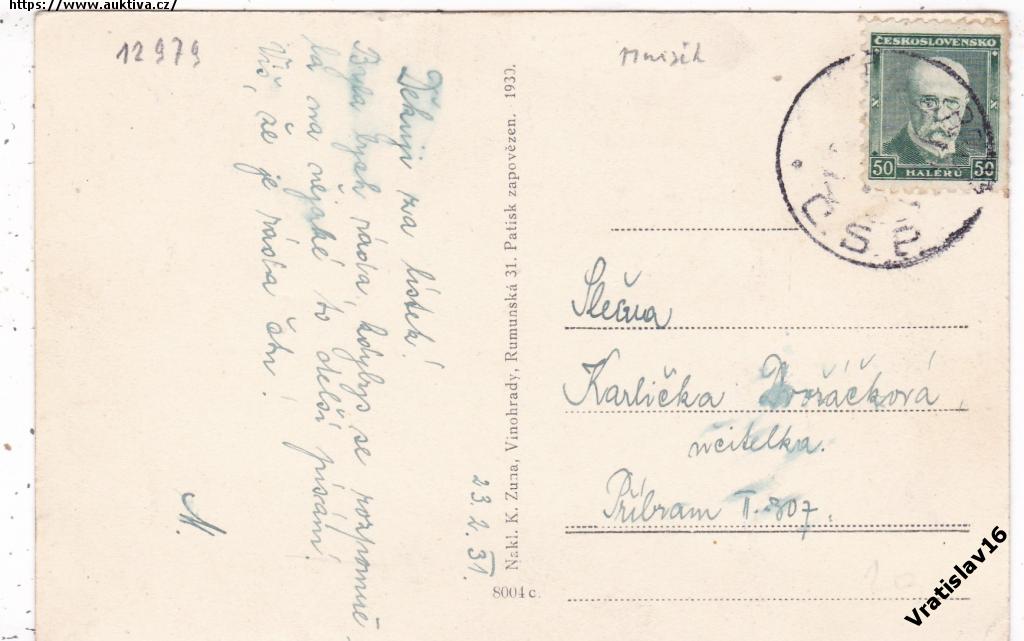 https://www.auktiva.cz/
12979
Děkuji za lístek!
Byla bych ráda, kdybys se rozpomně-
la na nějaké to delší psaní!
Víš, že je ráda čtu!
N.
23. 2. 31.
Nakl. K. Zuna, Vinohrady, Rumunská 31. Patisk zapovězen. 1930.
8004 c.
ČESKOSLOVENSKO
50 HALÉRŮ 50
Č.S.P.
Slečna
Karlička Dvořáčková,
učitelka.
Příbram II. 307.
Vratislav16